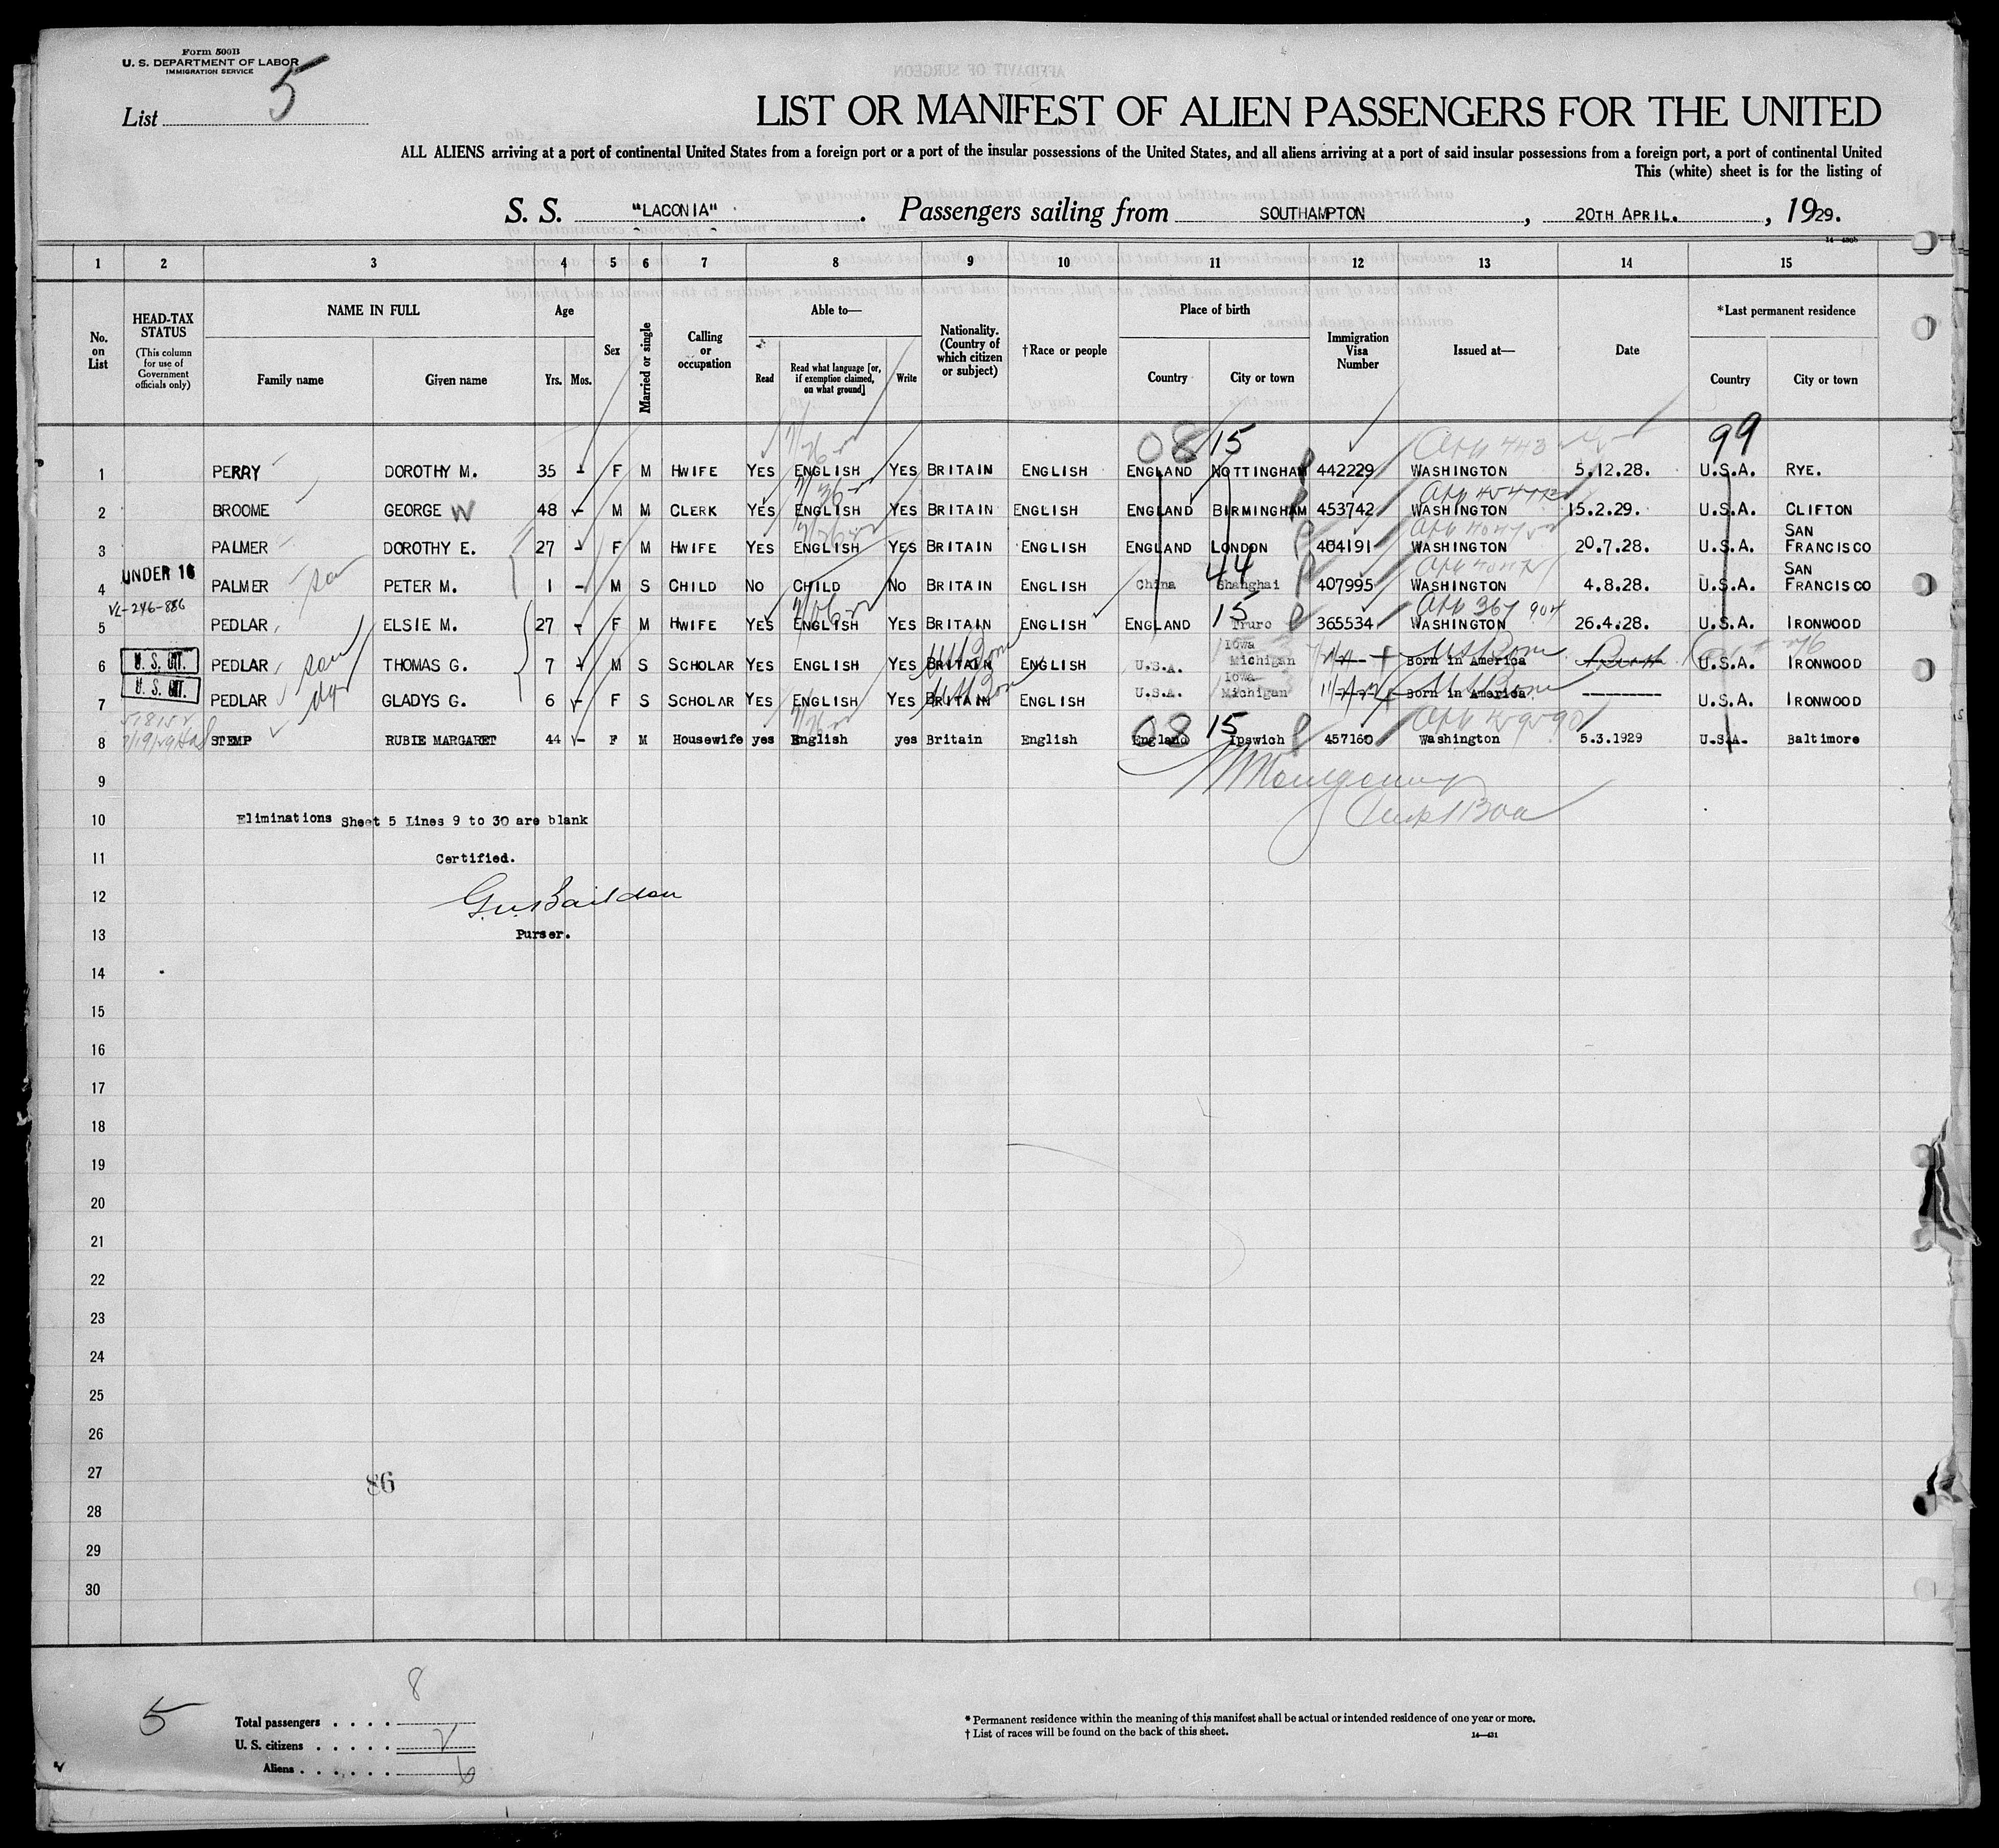 Form 500B
U. S. DEPARTMENT OF LABOR
IMMIGRATION SERVICE
List 5
LIST OR MANIFEST OF ALIEN PASSENGERS FOR THE UNITED
ALL ALIENS arriving at a port of continental United States from a foreign port or a port of the insular possessions of the United States, and all aliens arriving at a port of said insular possessions from a foreign port, a port of continental United
This (white) sheet is for the listing of
S. S. "LACONIA" . Passengers sailing from SOUTHAMPTON , 20TH APRIL. , 1929.
1 2 3 4 5 6 7 8 9 10 11 12 13 14 15
No. on List
HEAD-TAX STATUS
(This column for use of Government officials only)
NAME IN FULL
Family name Given name
Age
Yrs. Mos.
Sex
Married or single
Calling or occupation
Able to—
Read
Read what language [or, if exemption claimed, on what ground]
Write
Nationality. (Country of which citizen or subject)
†Race or people
Place of birth
Country City or town
Immigration Visa Number
Issued at—
Date
*Last permanent residence
Country City or town
08 15 99
1 PERRY DOROTHY M. 35 - F M HWIFE YES ENGLISH YES BRITAIN ENGLISH ENGLAND NOTTINGHAM 442229 WASHINGTON 5.12.28. U.S.A. RYE.
2 BROOME GEORGE W 48 - M M CLERK YES ENGLISH YES BRITAIN ENGLISH ENGLAND BIRMINGHAM 453742 WASHINGTON 15.2.29. U.S.A. CLIFTON
3 PALMER DOROTHY E. 27 - F M HWIFE YES ENGLISH YES BRITAIN ENGLISH ENGLAND LONDON 404191 WASHINGTON 20.7.28. U.S.A. SAN FRANCISCO
UNDER 16
44
4 PALMER son PETER M. 1 - M S CHILD NO CHILD NO BRITAIN ENGLISH China Shanghai 407995 WASHINGTON 4.8.28. U.S.A. SAN FRANCISCO
VL-246-886
15
5 PEDLAR, ELSIE M. 27 - F M HWIFE YES ENGLISH YES BRITAIN ENGLISH ENGLAND Truro 365534 WASHINGTON 26.4.28. U.S.A. IRONWOOD
6 U. S. CIT. PEDLAR, son THOMAS G. 7 - M S SCHOLAR YES ENGLISH YES BRITAIN US Born ENGLISH U.S.A. Iowa Michigan Born in America US Born U.S.A. IRONWOOD
7 U. S. CIT. PEDLAR GLADYS G. 6 - F S SCHOLAR YES ENGLISH YES BRITAIN US Born ENGLISH U.S.A. Iowa Michigan Born in America US Born U.S.A. IRONWOOD
08 15
8 STEMP RUBIE MARGARET 44 - F M Housewife yes English yes Britain English England Ipswich 457160 Washington 5.3.1929 U.S.A. Baltimore
9
10 Eliminations Sheet 5 Lines 9 to 30 are blank
11 Certified.
12
13 Purser.
14
15
16
17
18
19
20
21
22
23
24
25
26
27
86
28
29
30
8
5
Total passengers . . . .
U. S. citizens . . . . .
Aliens . . . . . . 6
* Permanent residence within the meaning of this manifest shall be actual or intended residence of one year or more.
† List of races will be found on the back of this sheet.
14—431